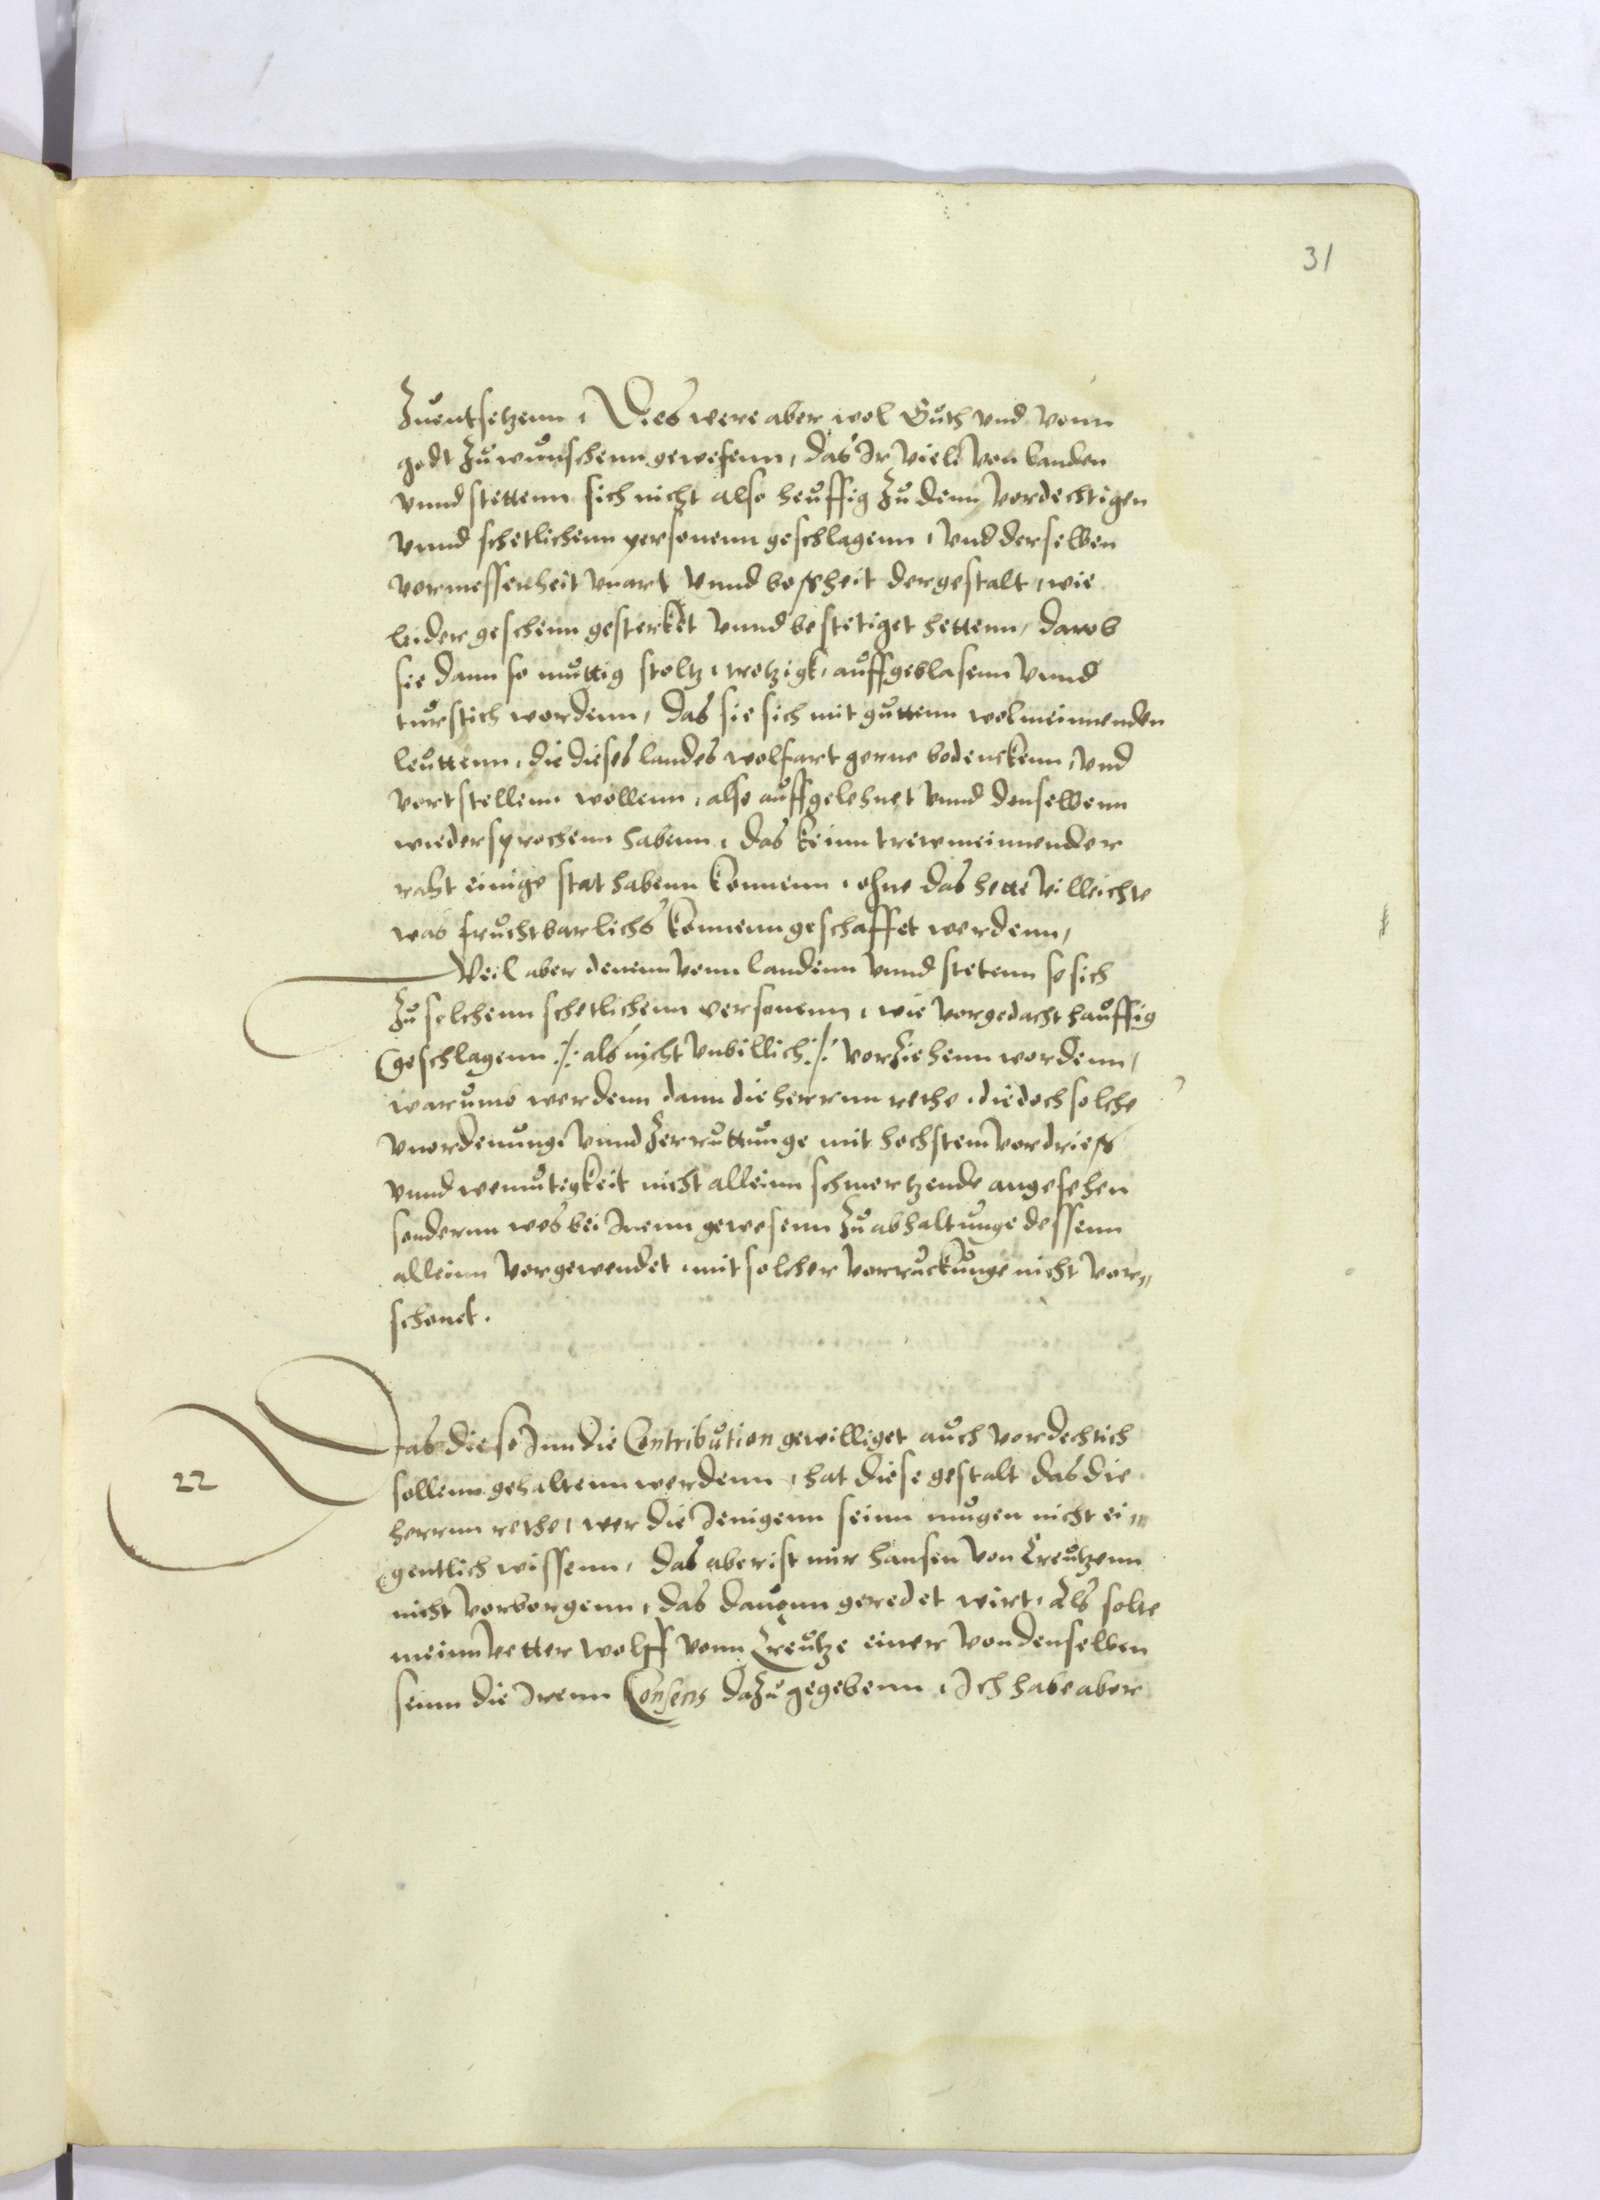 31
Zuentsetzenn, Dies were aber wol Guth vnd vonn
godt zuwunschenn gewesenn, das Jr viele von landen
vnnd stettenn sich nicht also heuffig zu denn vordechtigen
vnnd schetlichenn personenn geschlagenn, vnd derselben
vormessenheit vnart vnnd bosheit dergestalt, wie
leider geschenn gesterket vnnd bestetiget hettenn, darob
sie dann so muttig stoltz, trotzigk, auffgeblasenn vnnd
turstich wordenn, das sie sich mit guttenn wolmeinnenden
leuttenn, die dieses landes wolfart gerne bedenckenn, vnd
vortstellenn wollenn, also auffgelehnet vnnd denselbenn
wiedersprochenn habenn, das keinn trewmeinnender
raht einige stat habenn konnenn, ohne das hette villeichte
was fruchtbarlichs konnenn geschaffet werdenn,
Weil aber denenn vonn landenn vnnd stetenn so sich
zu solchenn schetlichenn personenn, wie vorgedacht hauffig
geschlagenn ./. als nicht vnbillich ./. vorziehenn wordenn,
warumb werdenn dann die herrnn rethe, die doch solche
vnordenunge vnnd zerruttunge mit hochstem vordries
vnnd wemutigkeit nicht alleinn schmertzende angesehen
sondernn was bei Jrenn gewesenn zu abhaltunge dessenn
alleinn vorgewendet, mit solcher vorruckunge nicht vor„
schonet.
22
Das diese Jnn die Contribution gewilliget auch vordechtich
sollenn gehaltenn werdenn, hat diese gestalt das die
herrnn rethe, wer die Jenigenn seinn mugen nicht ei„
gentlich wissenn, das aber ist mir hansen von Creutzenn
nicht vorborgenn, das dauonn geredet wirt, Als solte
meinn vetter wolff vonn Creutze einer von denselben
seinn die Jrenn Consens dazu gegebenn, Jch habe aber